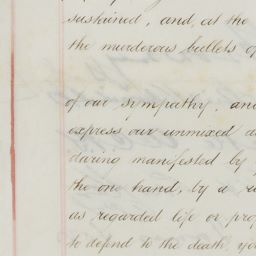 sustained, and, at the
the murderous bullets of
of our sympathy, and
express our unmixed
daring manifested by
the one hand, by a
as regarded life or
to defend to the death,